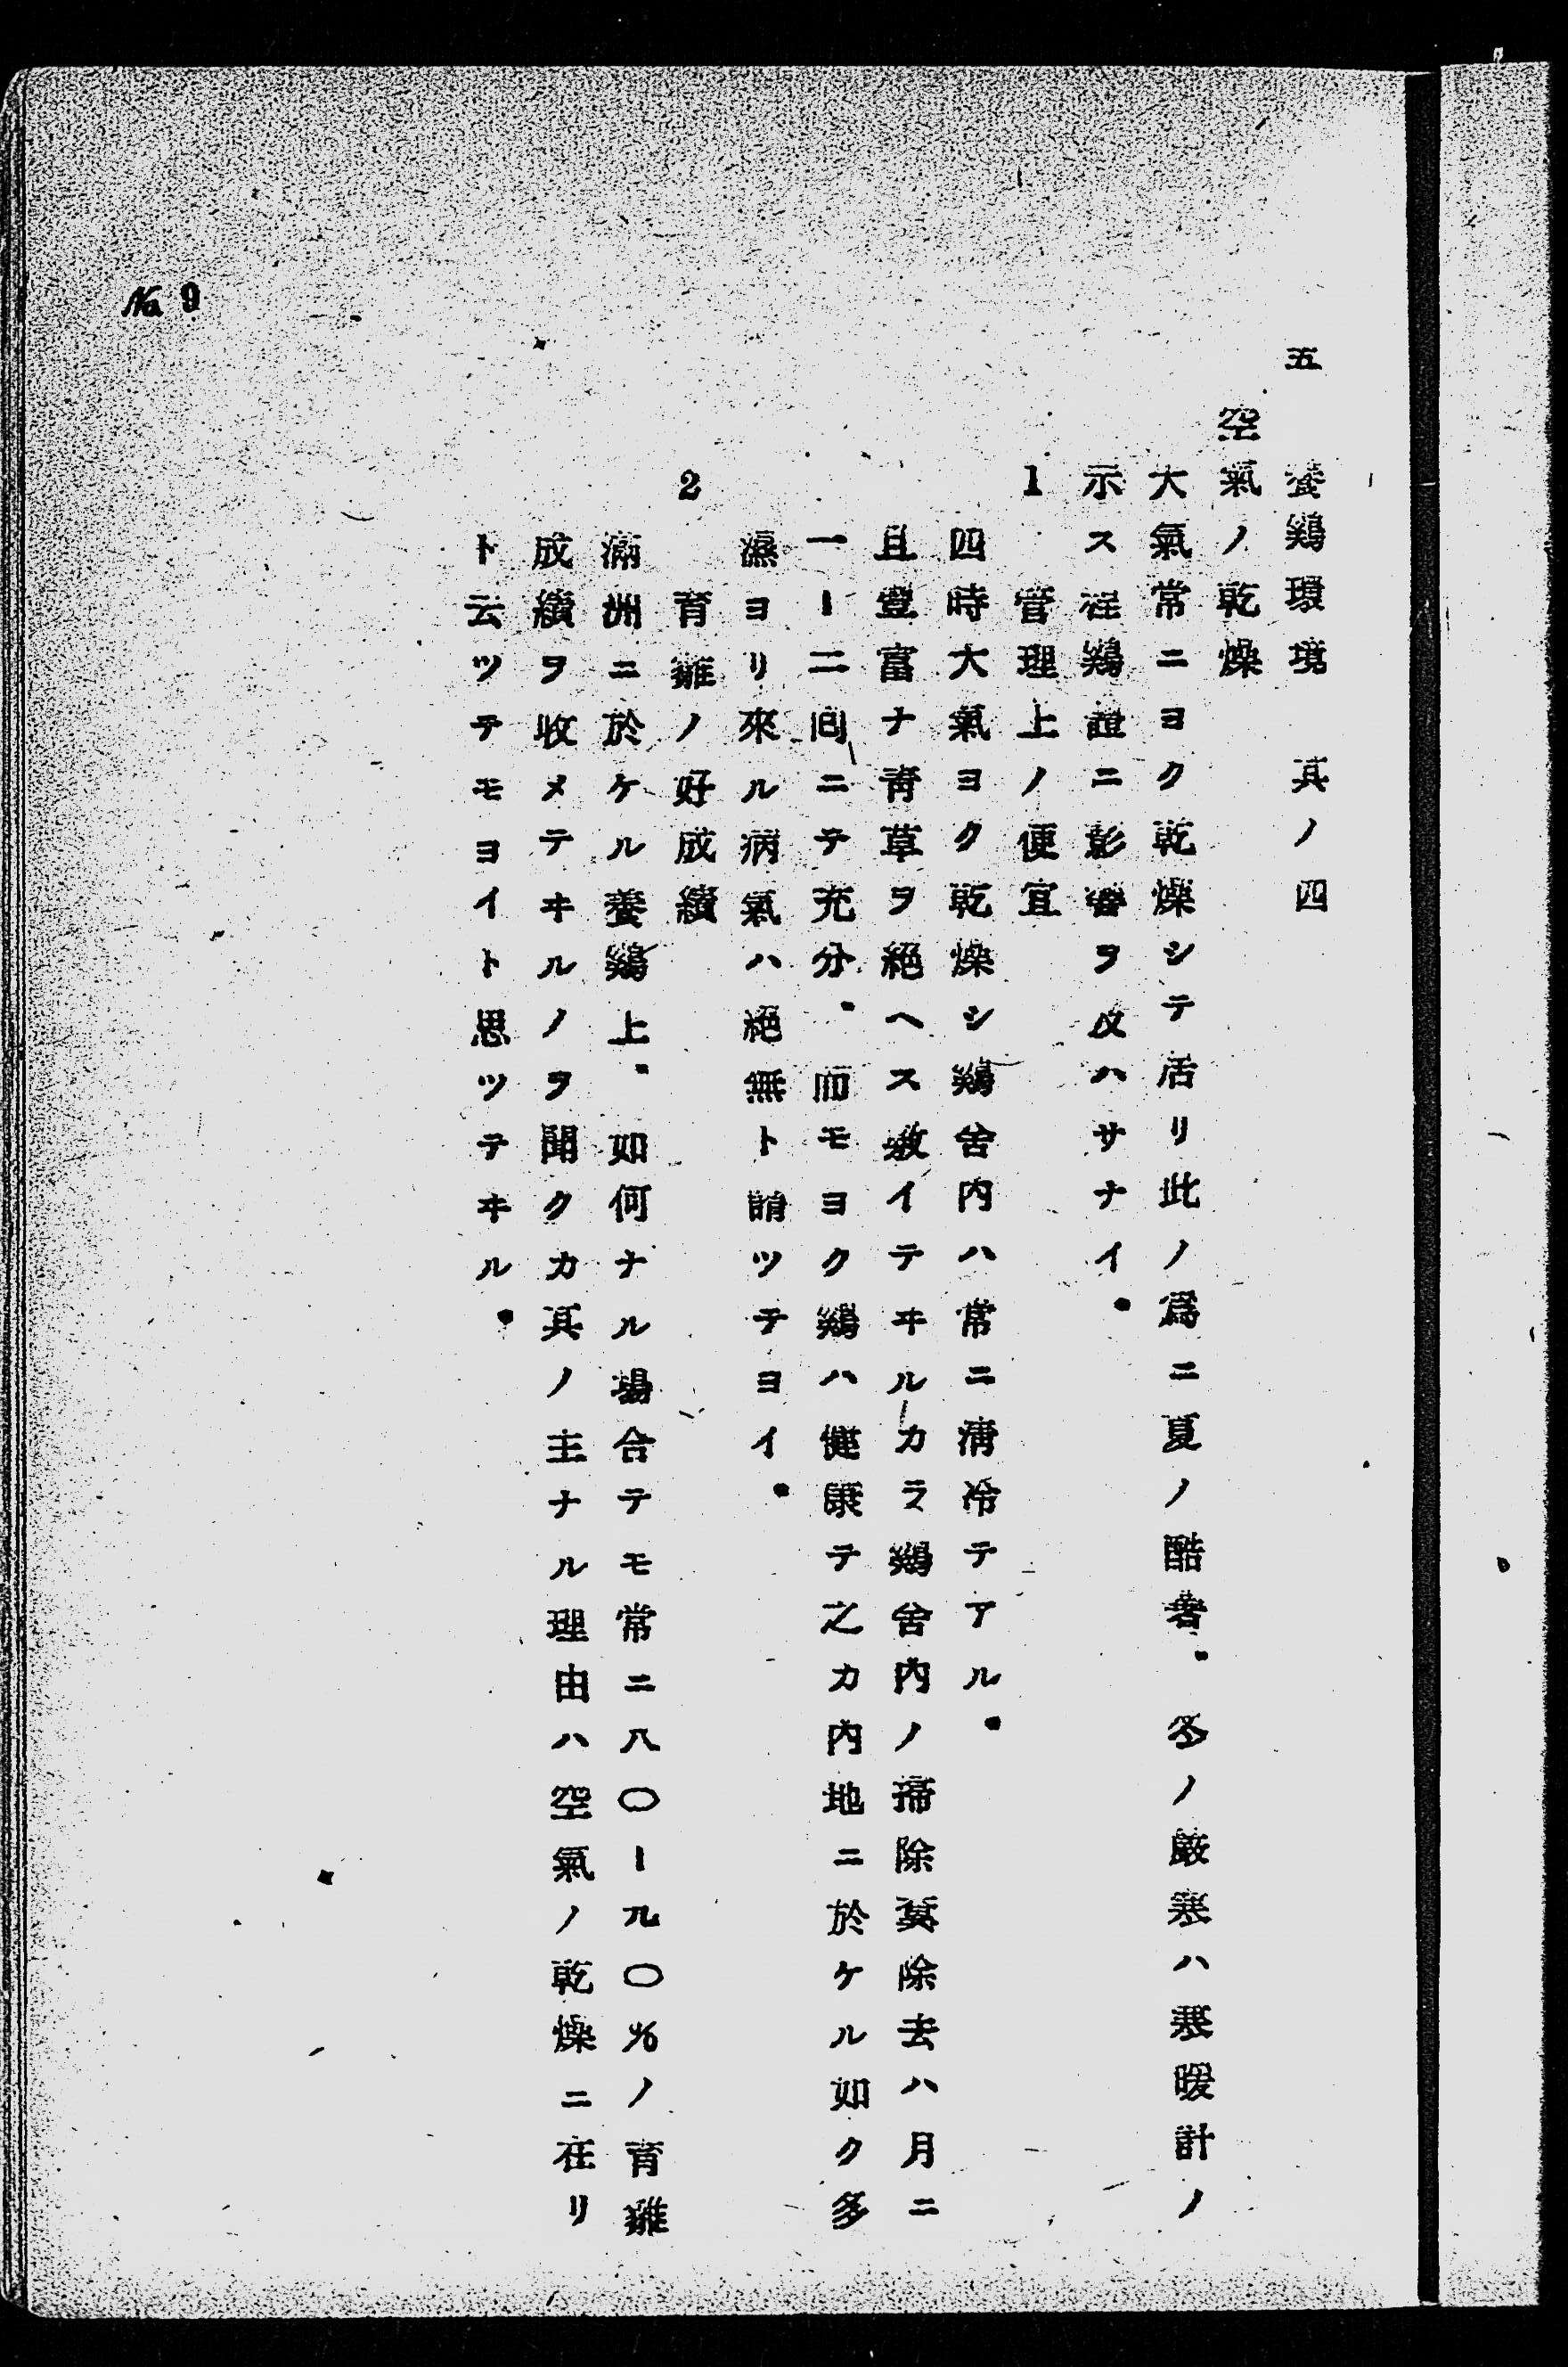 五　養鷄環境　其ノ四
空氣ノ乾燥
大氣常ニヨク乾燥シテ居リ此ノ爲ニ夏ノ酷暑、冬ノ嚴寒ハ寒暖計ノ
示ス程鷄體ニ影響ヲ及ハサナイ。
1　管理上ノ便宜
四時大氣ヨク乾燥シ鷄舍内ハ常ニ清冷テアル。
且豐富ナ青草ヲ絶ヘス敷イテヰルカラ鷄舍内ノ掃除糞除去ハ月ニ
一ー二囘ニテ充分、而モヨク鷄ハ健康テ之カ内地ニ於ケル如ク多
濕ヨリ來ル病氣ハ絶無ト謂ツテヨイ。
2　育雛ノ好成績
滿洲ニ於ケル養鷄上、如何ナル場合テモ常ニ八〇ー九〇%ノ育雛
成績ヲ收メテヰルノヲ聞クカ其ノ主ナル理由ハ空氣ノ乾燥ニ在リ
ト云ツテモヨイト思ツテヰル。
No. 9